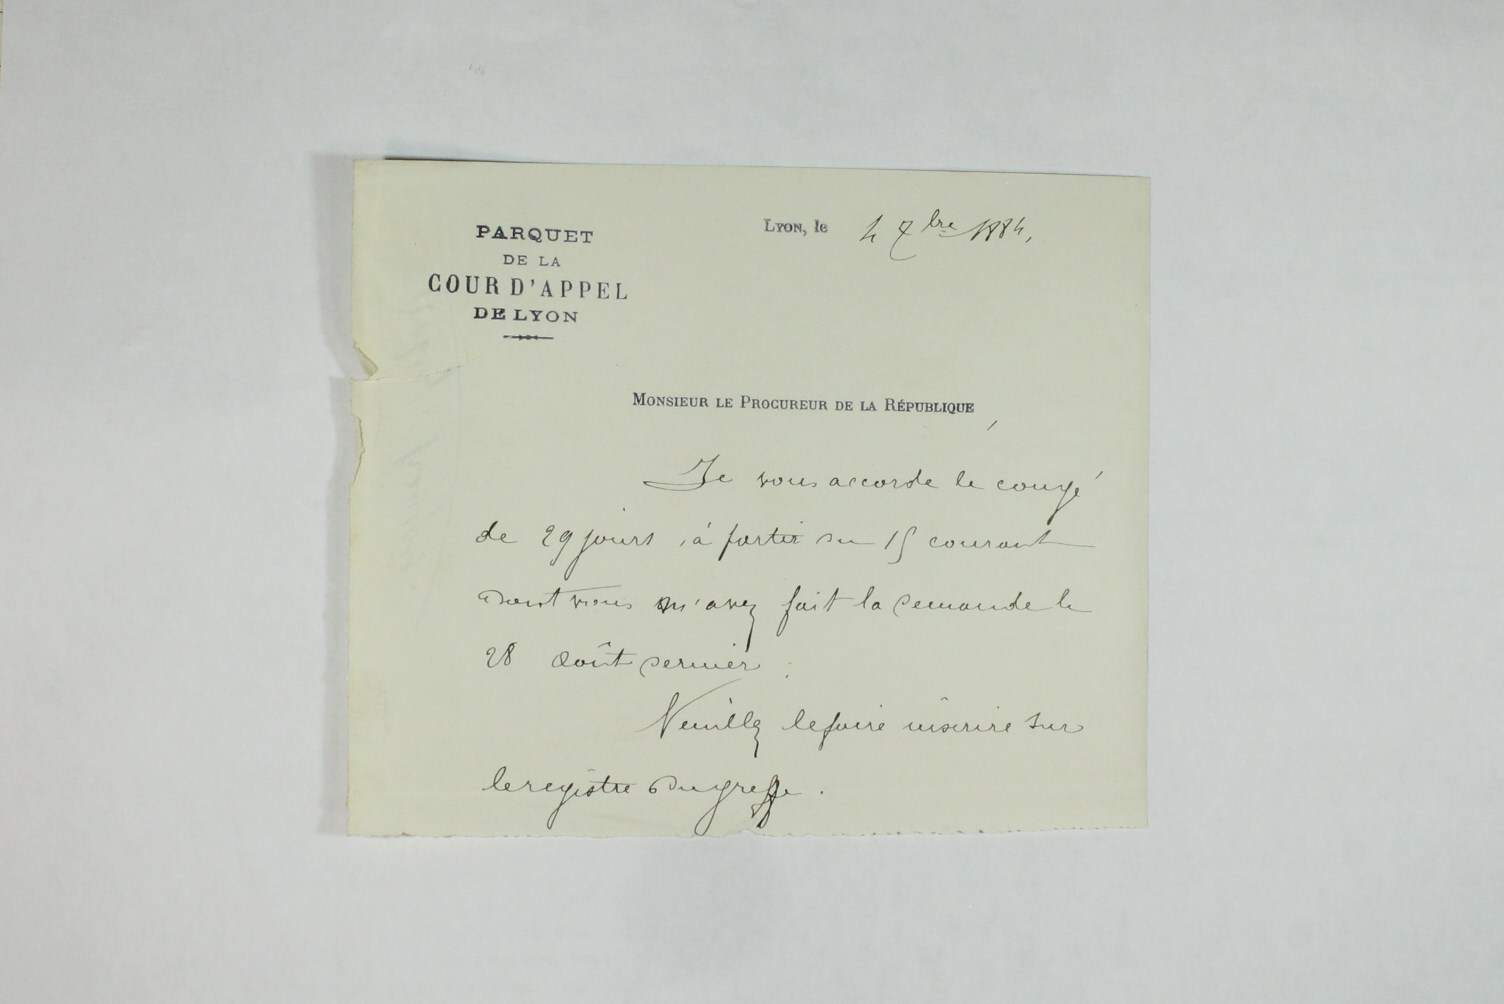 PARQUET
DE LA
COUR D'APPEL
DE LYON
Lyon, le 4 7bre 1884,
Monsieur le Procureur de la République,
Je vous accorde le congé
de 29 jours, à partir du 15 courant
dont vous m'avez fait la demande le
28 août dernier.
Veuillez le faire inscrire sur
le registre du greffe.